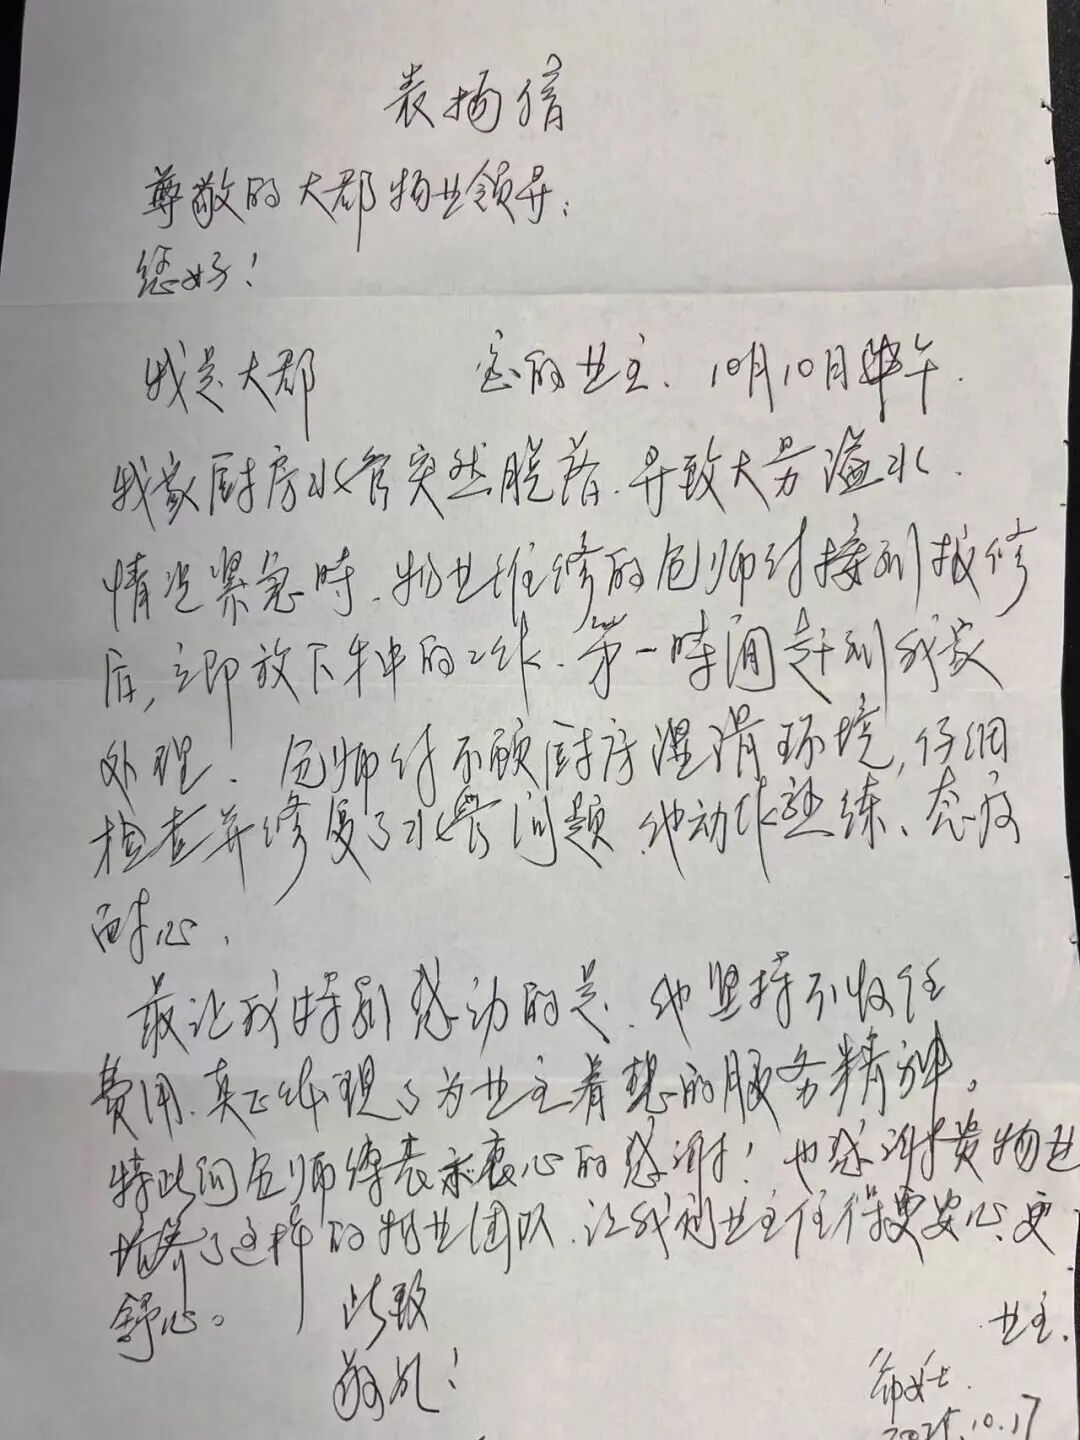 表扬信
尊敬的大郡物业领导：
您好！
我是大郡 室的业主、10月10日中午.
我家厨房水管突然脱落、导致大号溢水.
情况紧急时、物业维修的包师付接到报修
后，立即放下手中的工作、第一时间赶到我家
处理. 包师付不顾厨房湿滑环境，仔细
检查并修复了水管问题.他动作熟练、态度
耐心.
最让我特别感动的是、他坚持不收任
费用、真正体现了为业主着想的服务精神。
特此向包师傅表示衷心的感谢！也感谢贵物业
培养了这样的物业团队、让我们业主住得更安心、更
舒心。 此致 业主.
敬礼！
2025.10.17